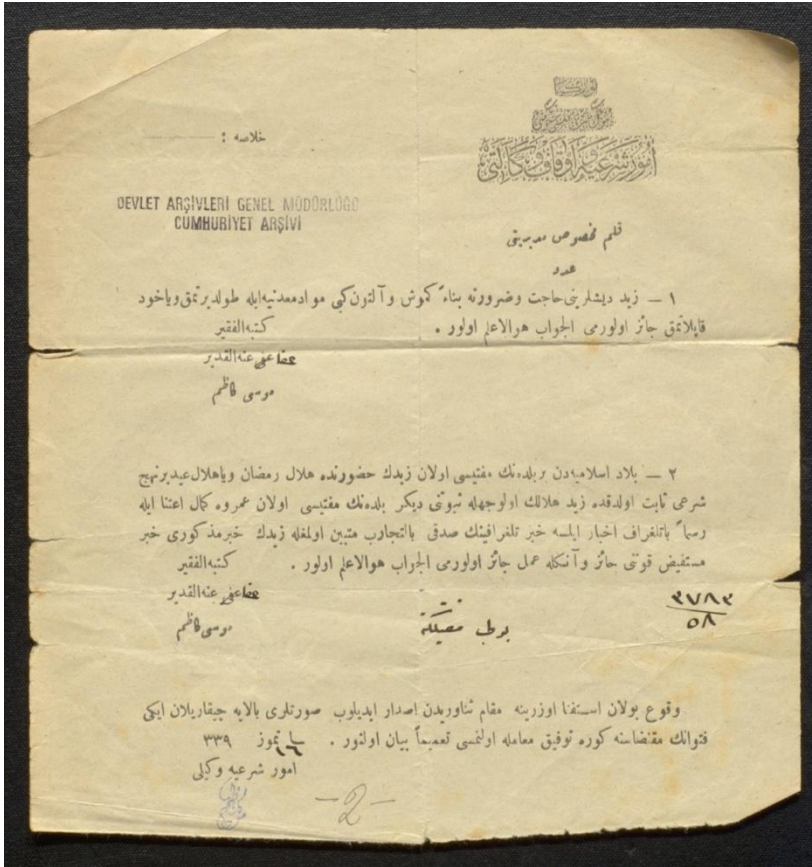 تورکیا
بویوک ملت مجلسی حکومتی
امور شرعیه و اوقاف وکالتی
خلاصه :
DEVLET ARŞİVLERİ GENEL MÜDÜRLÜĞÜ
CUMHURİYET ARŞİVİ
قلم مخصوص مدیریتی
عدد
١ — زید دیشلرینی حاجت وضرورته بناءً کموش وآلتون کبی مواد معدنیه ایله طولدیرتمق ویاخود
قاپلاتمق جائز اولورمی الجواب هوالاعلم اولور .
کتبه الفقیر
عفا عنه القدیر
موسی کاظم
٢ — بلاد اسلامیه دن بر بلده نک مفتیسی اولان زیدک حضورنده هلال رمضان ویا هلال عید بر نهج
شرعی ثابت اولدقده زید هلالک اولوجهله ثبوتنی دیکر بلده نک مفتیسی اولان عمروه کمال اعتنا ایله
رسماً باتلغراف اخبار ایلسه خبر تلغرافینک صدقی بالتجارب متبین اولمغله زیدک خبر مذکوری خبر
مستفیض قوتنی حائز وآنکله عمل جائز اولورمی الجواب هوالاعلم اولور .
کتبه الفقیر
عفا عنه القدیر
موسی کاظم
٣٧٨٣
٥٨
وقوع بولان استفتا اوزرینه مقام فتاوریدن اصدار ایدیلوب صورتلری بالایه چیقاریلان ایکی
فتوانک مقتضاسنه کوره توفیق معامله اولنمسی تعمیماً بیان اولنور . ١٦ تموز ٣٣٩
امور شرعیه وکیلی
-2-